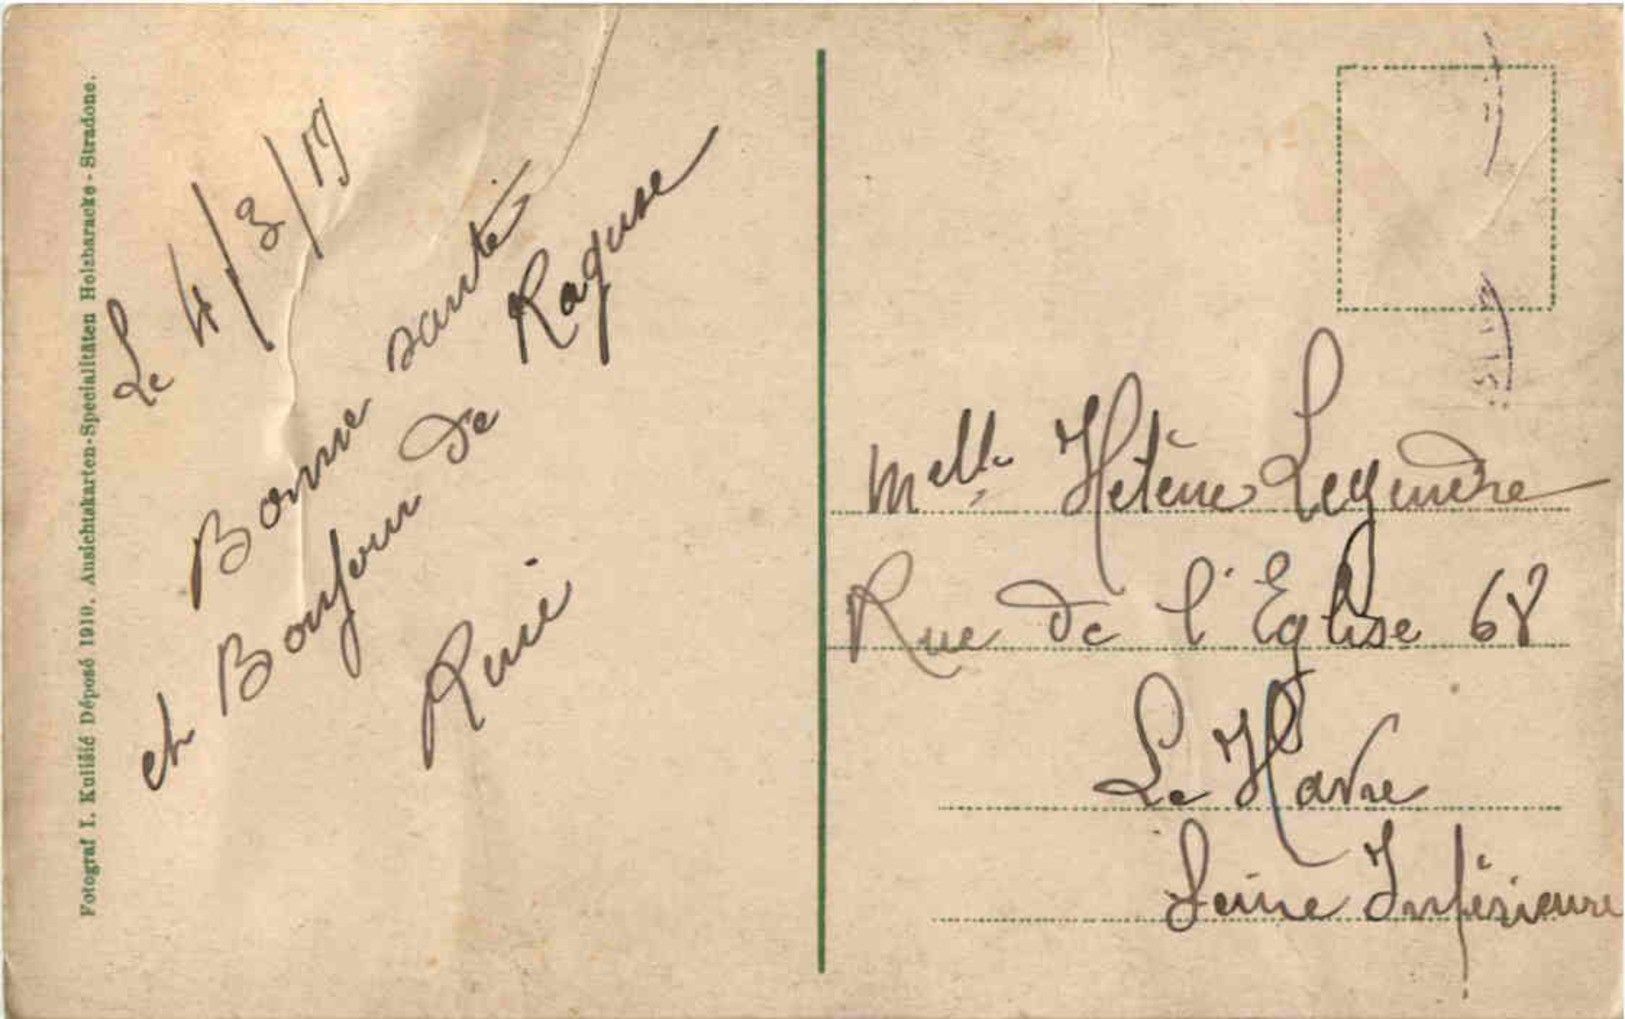 Fotograf I. Kulišić Déposé 1910. Ansichtskarten-Specialitäten Holzbaracke - Stradone.
Le 4/3/19
Bonne santé
et Bonjour de
Raguse
René
Melle Hélène Legendre
Rue de l'Eglise 68
Le Havre
Seine Inférieure